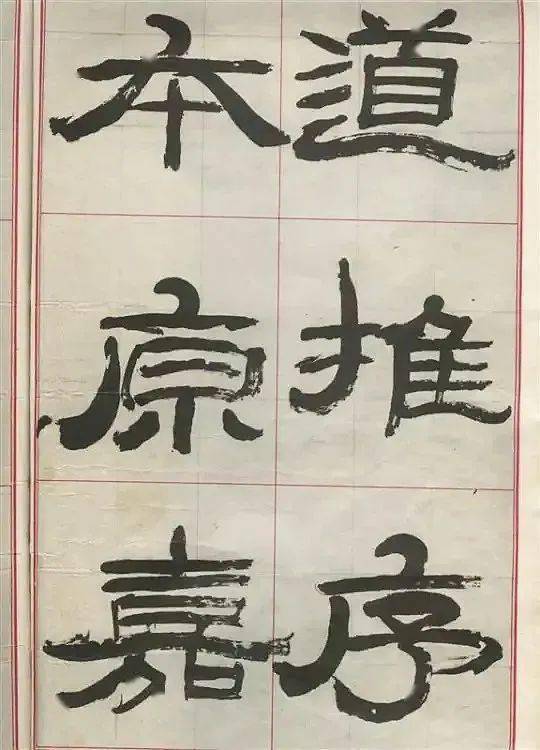 道推序
本原嘉